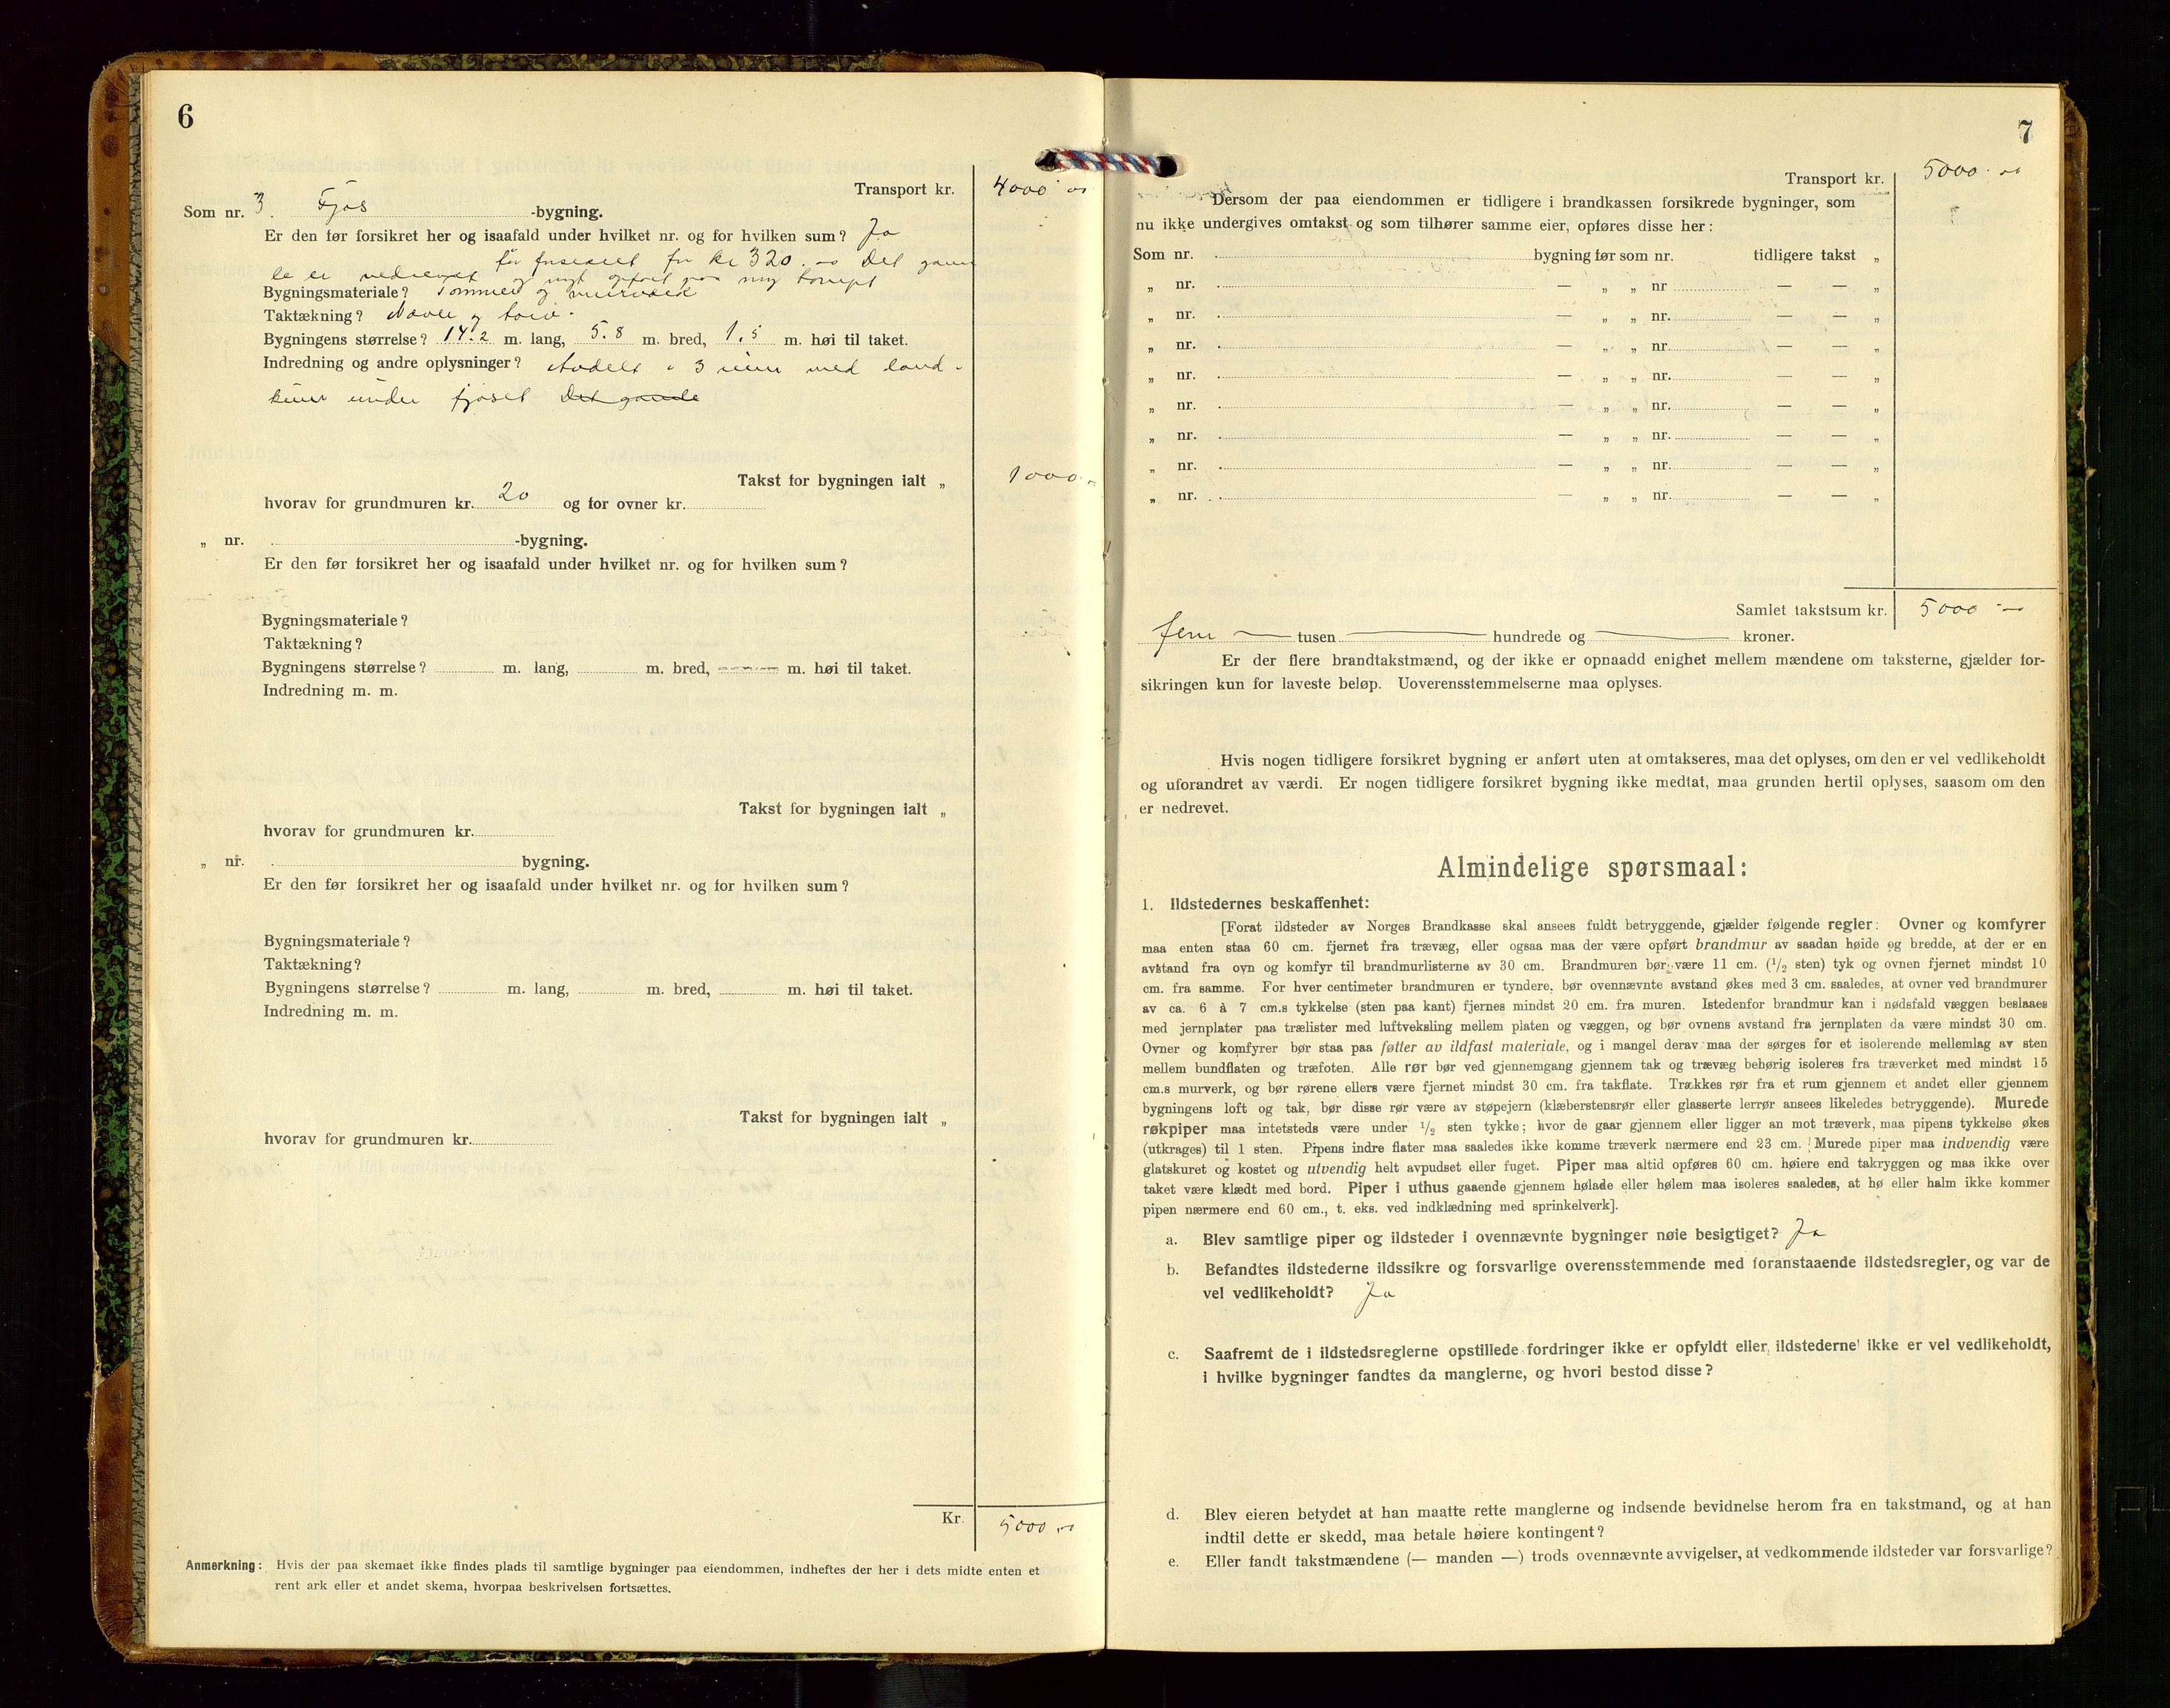 6
Transport kr. 4000 00
Som nr. 3. Fjøs -bygning.
Er den før forsikret her og isaafald under hvilket nr. og for hvilken sum? Ja
før forsikret for kr 320.00 Det gam
le er nedrevet og nyt opført paa ny tompt
Bygningsmateriale? Tømmer og murværk
Taktækning? Næver og torv.
Bygningens størrelse? 14.2 m. lang, 5.8 m. bred, 1.5 m. høi til taket.
Indredning og andre oplysninger? Avdelt i 3 rum med land-
kum under fjøset Det gamle
Takst for bygningen ialt „ 1000
hvorav for grundmuren kr. 20 og for ovner kr.
„ nr. -bygning.
Er den før forsikret her og isaafald under hvilket nr. og for hvilken sum?
Bygningsmateriale?
Taktækning?
Bygningens størrelse? m. lang, m. bred, m. høi til taket.
Indredning m. m.
Takst for bygningen ialt „
hvorav for grundmuren kr.
„ nr. bygning.
Er den før forsikret her og isaafald under hvilket nr. og for hvilken sum?
Bygningsmateriale?
Taktækning?
Bygningens størrelse? m. lang, m. bred, m. høi til taket.
Indredning m. m.
Takst for bygningen ialt „
hvorav for grundmuren kr.
Kr. 5000 00
Anmerkning: Hvis der paa skemaet ikke findes plads til samtlige bygninger paa eiendommen, indheftes der her i dets midte enten et
rent ark eller et andet skema, hvorpaa beskrivelsen fortsættes.
7
Transport kr. 5000.00
Dersom der paa eiendommen er tidligere i brandkassen forsikrede bygninger, som
nu ikke undergives omtakst og som tilhører samme eier, opføres disse her:
Som nr. bygning før som nr. tidligere takst „
„ nr. — „ „ nr — — „
„ nr. — „ „ nr. — — „
„ nr. — „ „ nr — — „
„ nr. — „ „ nr. — — „
„ nr. — „ „ nr. — — „
„ nr. — „ „ nr. — — „
„ nr. — „ „ nr. — — „
„ nr. — „ „ nr. — — „
Samlet takstsum kr. 5000 —
fem — tusen — hundrede og — kroner.
Er der flere brandtakstmænd, og der ikke er opnaadd enighet mellem mændene om taksterne, gjælder for-
sikringen kun for laveste beløp. Uoverensstemmelserne maa oplyses.
Hvis nogen tidligere forsikret bygning er anført uten at omtakseres, maa det oplyses, om den er vel vedlikeholdt
og uforandret av værdi. Er nogen tidligere forsikret bygning ikke medtat, maa grunden hertil oplyses, saasom om den
er nedrevet.
Almindelige spørsmaal:
1. Ildstedernes beskaffenhet:
[Forat ildsteder av Norges Brandkasse skal ansees fuldt betryggende, gjælder følgende regler: Ovner og komfyrer
maa enten staa 60 cm. fjernet fra trævæg, eller ogsaa maa der være opført brandmur av saadan høide og bredde, at der er en
avstand fra ovn og komfyr til brandmurlisterne av 30 cm. Brandmuren bør være 11 cm. (1/2 sten) tyk og ovnen fjernet mindst 10
cm. fra samme. For hver centimeter brandmuren er tyndere, bør ovennævnte avstand økes med 3 cm. saaledes, at ovner ved brandmurer
av ca. 6 à 7 cm.s tykkelse (sten paa kant) fjernes mindst 20 cm. fra muren. Istedenfor brandmur kan i nødsfald væggen beslaaes
med jernplater paa trælister med luftveksling mellem platen og væggen, og bør ovnens avstand fra jernplaten da være mindst 30 cm.
Ovner og komfyrer bør staa paa føtter av ildfast materiale, og i mangel derav maa der sørges for et isolerende mellemlag av sten
mellem bundflaten og træfoten. Alle rør bør ved gjennemgang gjennem tak og trævæg behørig isoleres fra træverket med mindst 15
cm.s murverk, og bør rørene ellers være fjernet mindst 30 cm. fra takflate. Trækkes rør fra et rum gjennem et andet eller gjennem
bygningens loft og tak, bør disse rør være av støpejern (klæberstensrør eller glasserte lerrør ansees likeledes betryggende). Murede
røkpiper maa intetsteds være under 1/2 sten tykke; hvor de gaar gjennem eller ligger an mot træverk, maa pipens tykkelse økes
(utkrages) til 1 sten. Pipens indre flater maa saaledes ikke komme træverk nærmere end 23 cm. Murede piper maa indvendig være
glatskuret og kostet og utvendig helt avpudset eller fuget. Piper maa altid opføres 60 cm. høiere end takryggen og maa ikke over
taket være klædt med bord. Piper i uthus gaaende gjennem hølade eller hølem maa isoleres saaledes, at hø eller halm ikke kommer
pipen nærmere end 60 cm., t. eks. ved indklædning med sprinkelverk].
a. Blev samtlige piper og ildsteder i ovennævnte bygninger nøie besigtiget? Ja
b. Befandtes ildstederne ildssikre og forsvarlige overensstemmende med foranstaaende ildstedsregler, og var de
vel vedlikeholdt? Ja
c. Saafremt de i ildstedsreglerne opstillede fordringer ikke er opfyldt eller ildstederne ikke er vel vedlikeholdt,
i hvilke bygninger fandtes da manglerne, og hvori bestod disse?
d. Blev eieren betydet at han maatte rette manglerne og indsende bevidnelse herom fra en takstmand, og at han
indtil dette er skedd, maa betale høiere kontingent?
e. Eller fandt takstmændene (— manden —) trods ovennævnte avvigelser, at vedkommende ildsteder var forsvarlige?